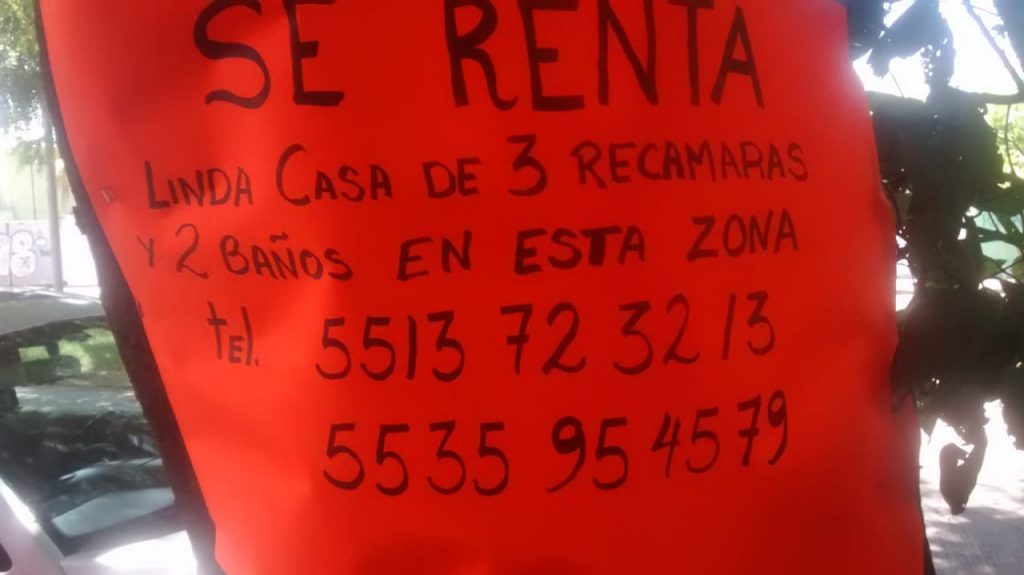 SE RENTA
LINDA CASA DE 3 RECAMARAS
Y 2 BAÑOS EN ESTA ZONA
tEl. 5513 72 32 13
5535 95 45 79